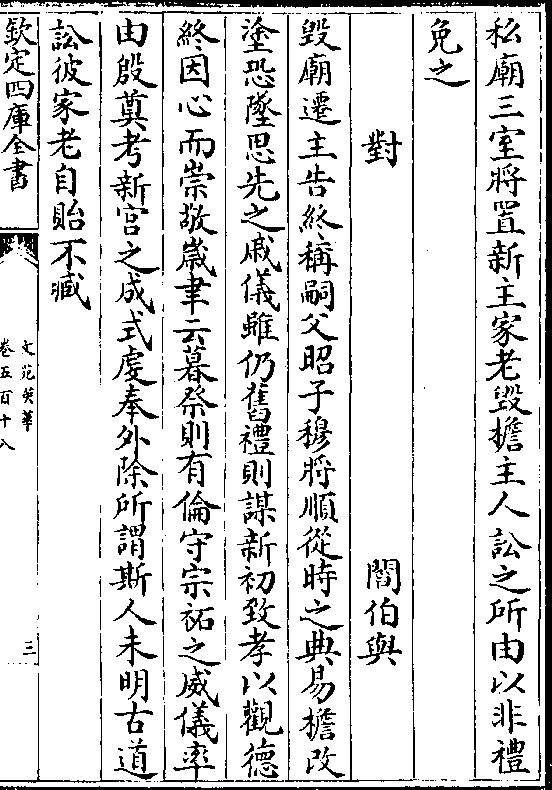 私廟三室將置新主家老毀擔主人訟之所由以非禮
免之
對　閻伯與
毀廟遷主告終稱嗣父昭子穆將順從時之典易檐改
塗恐墜思先之戚儀雖仍舊禮則謀新初致孝以觀德
終因心而崇敬歲聿云暮祭則有倫守宗祏之威儀率
由殷奠考新宫之成式虔奉外除所謂斯人未明古道
訟彼家老自貽不臧
欽定四庫全書
文苑英華
卷五百十八
三